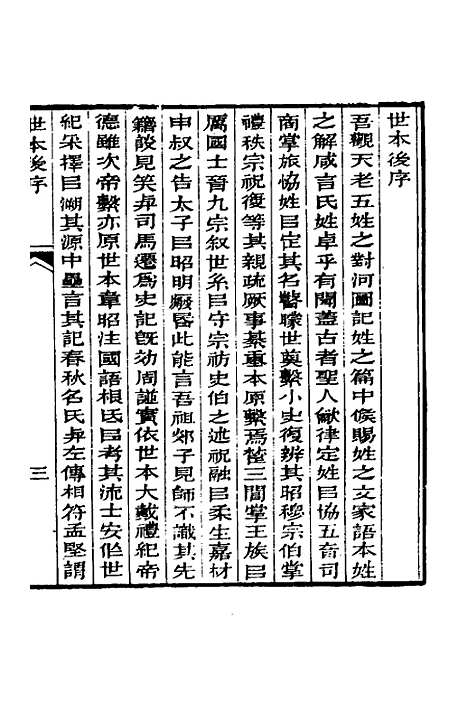 世本後序
吾觀天老五姓之對河圖記姓之篇中候賜姓之文家語本姓
之解咸言氏姓卓乎有聞蓋古者聖人龡律定姓㠯協五音司
商掌旅協姓㠯定其名瞽矇世奠繫小史復辨其昭穆宗伯掌
禮秩宗祝復等其親疏厥事綦重本原繫焉徃三閭掌王族㠯
厲國士晉九宗叙世系㠯守宗祊史伯之述祝融㠯柔生嘉材
申叔之告太子㠯昭明廢昏此能言吾祖郯子見師不識其先
籍談見笑弁司馬遷爲史記旣効周譜實依世本大戴禮紀帝
德雖次帝繫亦原世本韋昭注國語相氐㠯考其流士安作世
紀采擇㠯溯其源中壘言其記春秋名氏弁左傳相符孟堅謂
世本後序
三